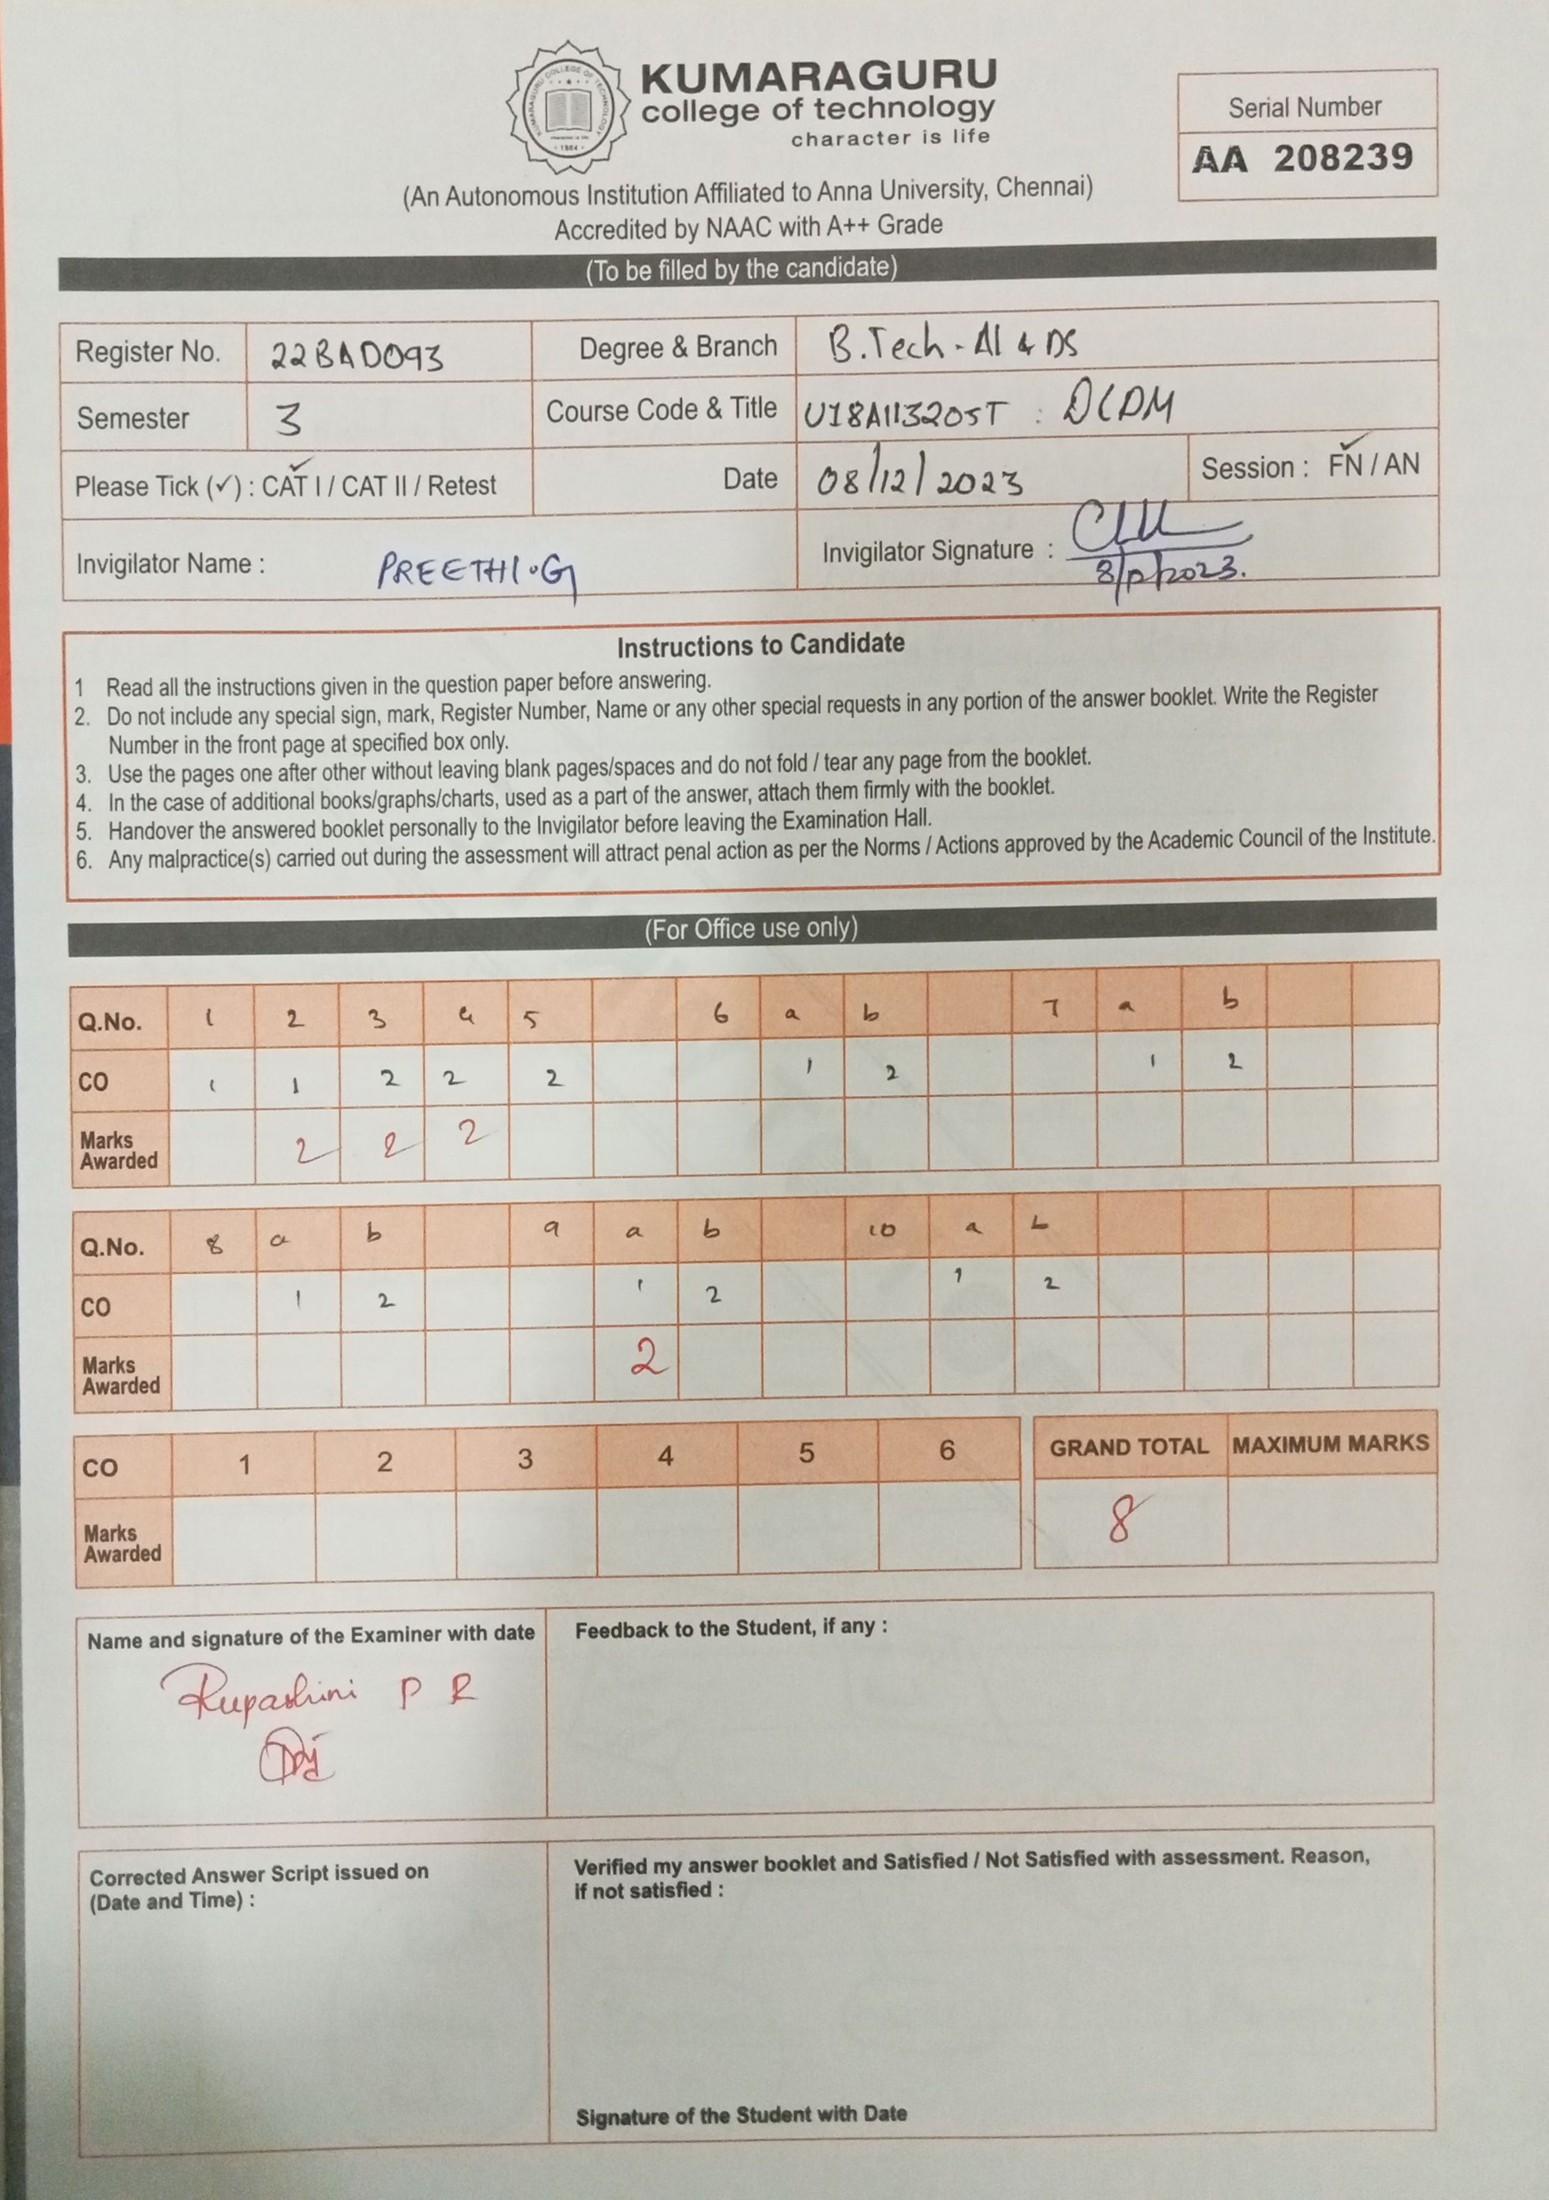 KUMARAGURU
college of technology
character is life
KUMARAGURU COLLEGE OF TECHNOLOGY
1984
(An Autonomous Institution Affiliated to Anna University, Chennai)
Accredited by NAAC with A++ Grade
Serial Number
AA 208239
(To be filled by the candidate)
Register No. 22BAD093 Degree & Branch B.Tech - AI & DS
Semester 3 Course Code & Title U18AII3205T : DCDM
Please Tick (✓) : CAT I / CAT II / Retest Date 08/12/2023 Session : FN / AN
Invigilator Name : PREETHI.G Invigilator Signature :
8/12/2023.
Instructions to Candidate
1 Read all the instructions given in the question paper before answering.
2. Do not include any special sign, mark, Register Number, Name or any other special requests in any portion of the answer booklet. Write the Register
Number in the front page at specified box only.
3. Use the pages one after other without leaving blank pages/spaces and do not fold / tear any page from the booklet.
4. In the case of additional books/graphs/charts, used as a part of the answer, attach them firmly with the booklet.
5. Handover the answered booklet personally to the Invigilator before leaving the Examination Hall.
6. Any malpractice(s) carried out during the assessment will attract penal action as per the Norms / Actions approved by the Academic Council of the Institute.
(For Office use only)
Q.No. 1 2 3 4 5 6 a b 7 a b
CO 1 1 2 2 2 1 2 1 2
Marks
Awarded 2 2 2
Q.No. 8 a b 9 a b 10 a b
CO 1 2 1 2 1 2
Marks
Awarded 2
CO 1 2 3 4 5 6 GRAND TOTAL MAXIMUM MARKS
Marks
Awarded 8
Name and signature of the Examiner with date
Rupashini P R
Feedback to the Student, if any :
Corrected Answer Script issued on
(Date and Time) :
Verified my answer booklet and Satisfied / Not Satisfied with assessment. Reason,
if not satisfied :
Signature of the Student with Date